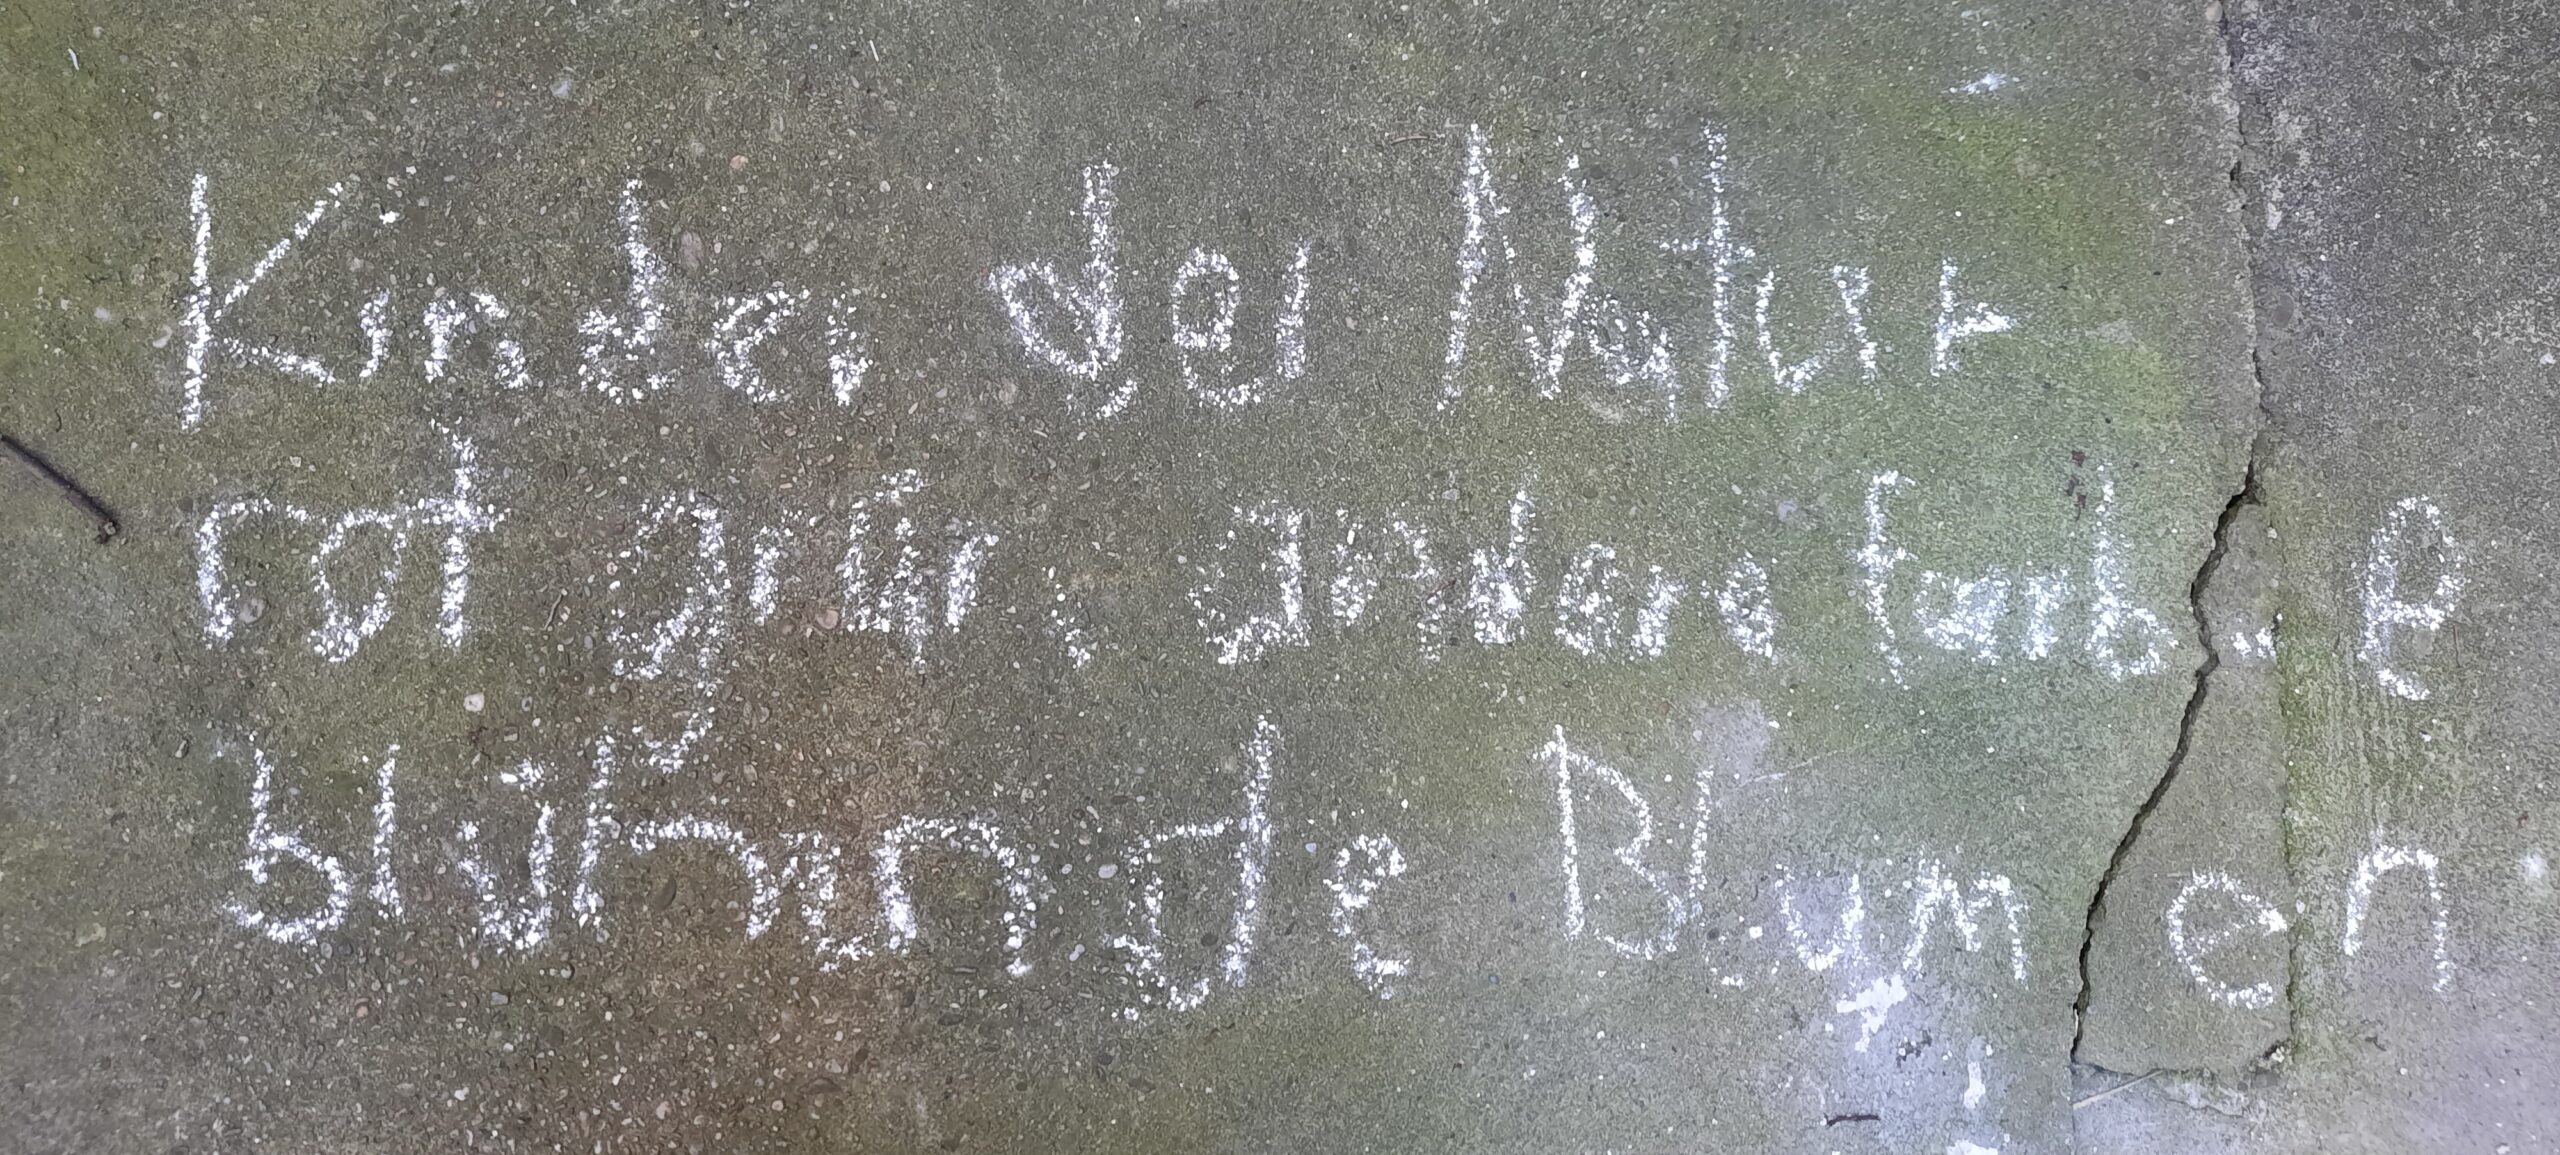 Kinder der Natur
rot grün, andere farb-e
blühende Blumen